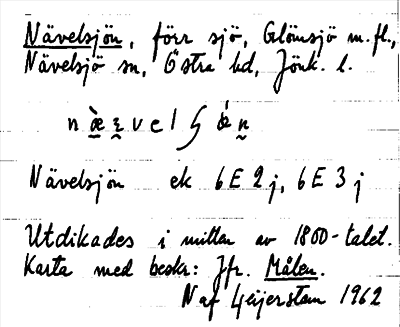 Nävelsjön, förr sjö, Glömsjö m.fl.,
Nävelsjö sn, Östra hd, Jönk. l.
Nävelsjön ek 6E 2j, 6E 3j
Utdikades i mitten av 1800-talet.
Karta med beskr: Jfr. Målen.
N af Geijerstam 1962